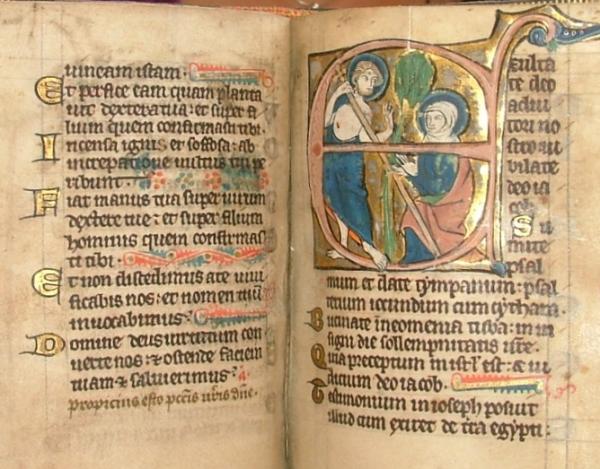 uineam istam.
Et perfice eam quam planta
uit dextera tua: et super fi
lium quem confirmasti tibi.
Incensa igni et suffosa: ab
increpatione uultus tui pe
ribunt.
Fiat manus tua super uirum
dextere tue: et super filium
hominis quem confirmas
ti tibi.
Et non discedimus a te uiui
ficabis nos: et nomen tuum
inuocabimus.
Domine deus uirtutum con
uerte nos: et ostende faciem
tuam et salui erimus.
propicius esto peccatis nostris domine.
Exulta
te deo
adiu
tori no
stro iu
bilate
deo ia
cob.
Su
mite
psal
mum et date tympanum: psal
terium iocundum cum cythara.
Bucinate in neomenia tuba: in in
signi die sollempnitatis
Quia preceptum in isrl est: et iu
dicium deo iacob.
Testimonium in ioseph posuit
illud cum exiret de terra egypti: